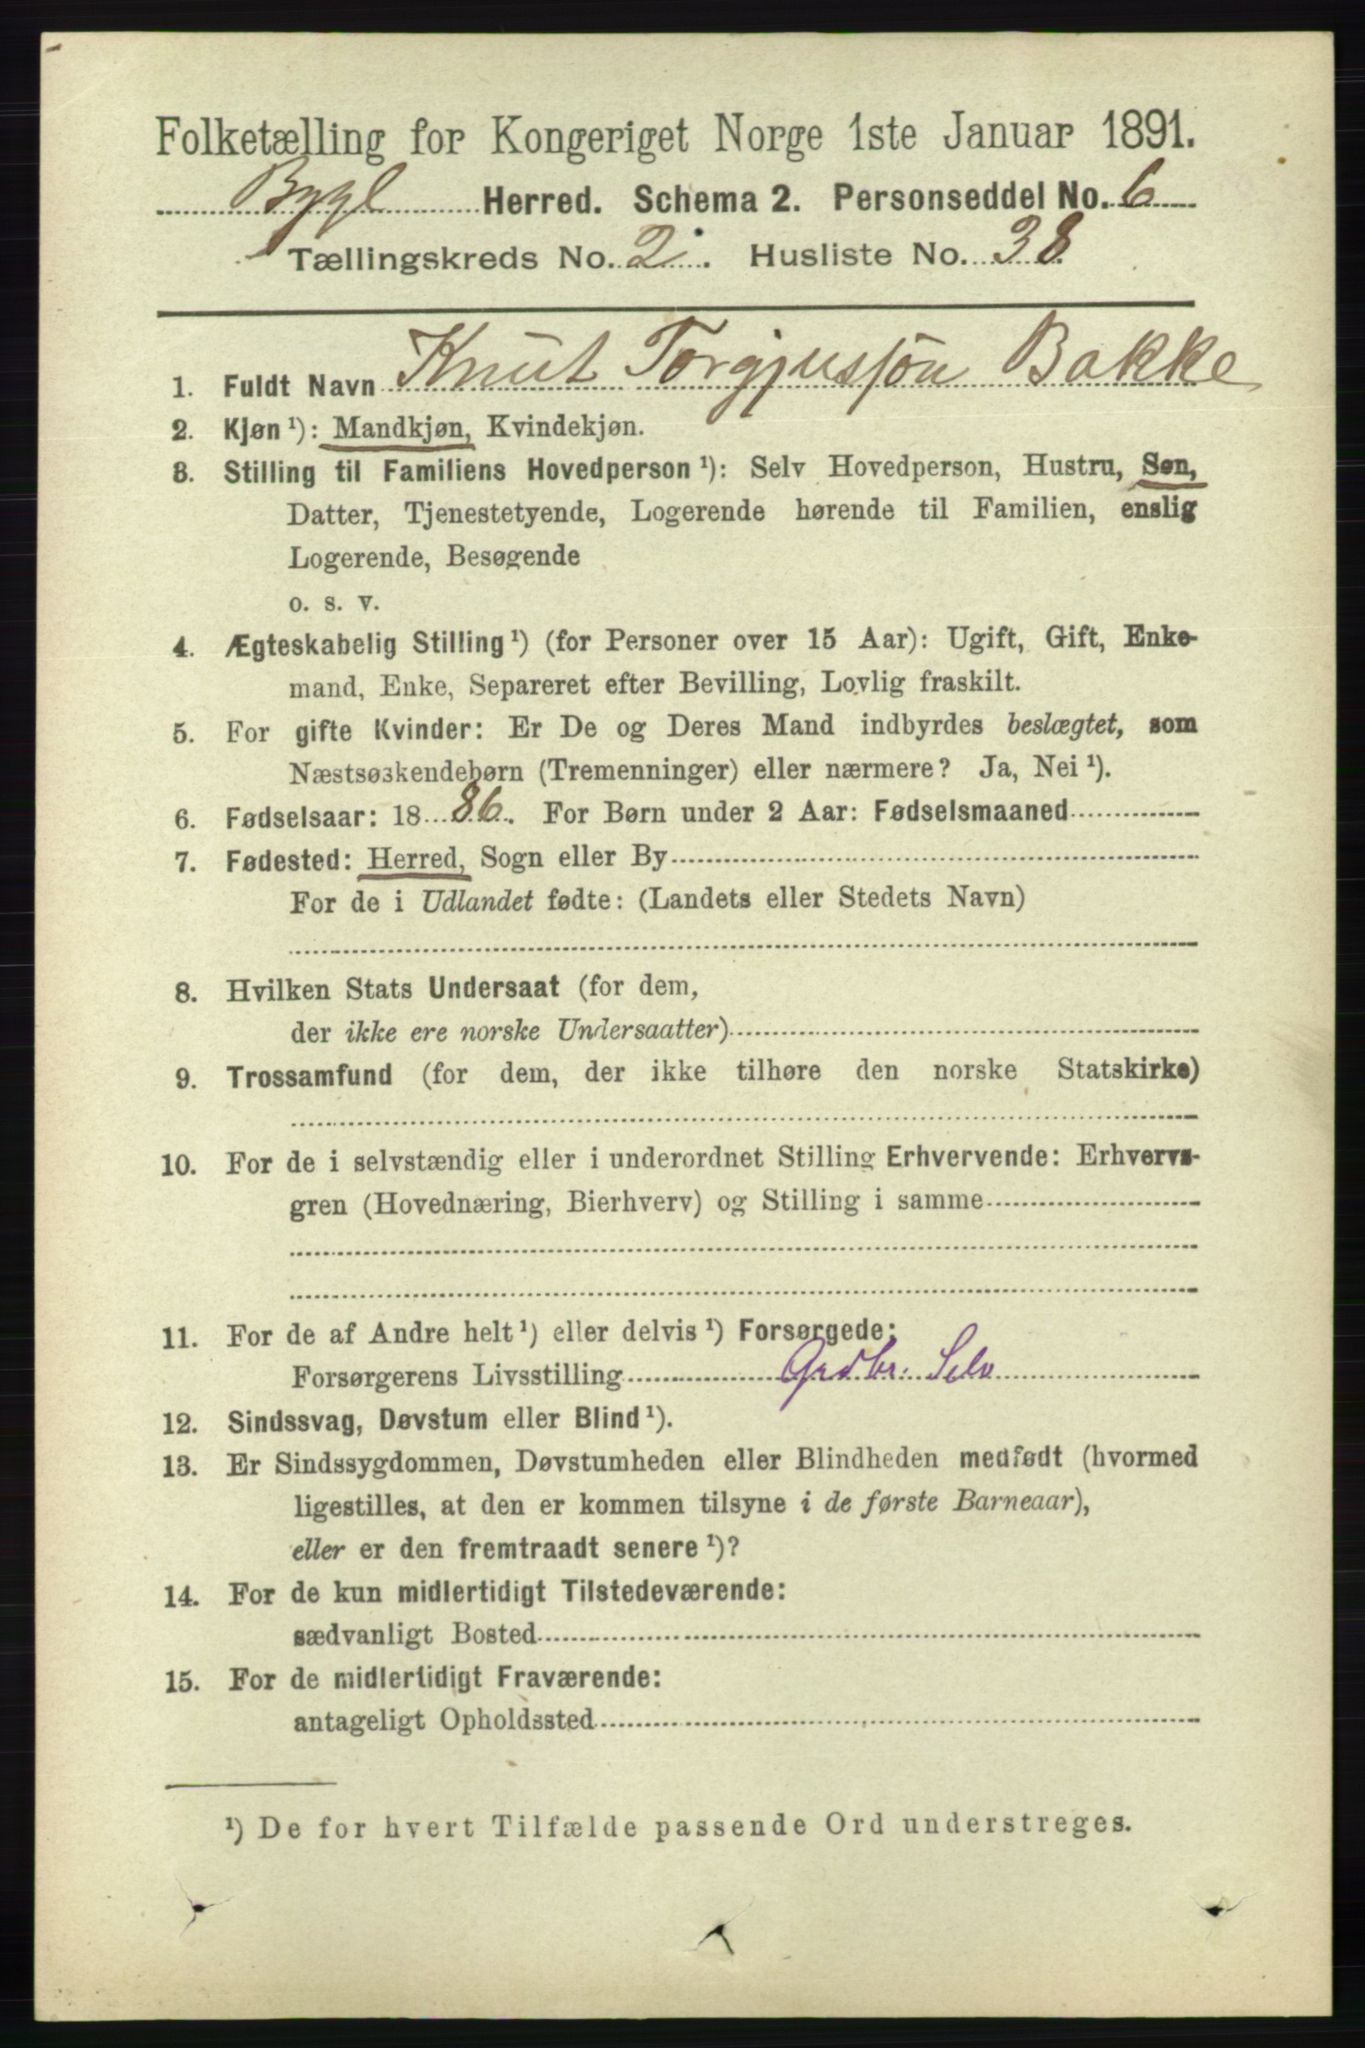 Folketælling for Kongeriget Norge 1ste Januar 1891.
Bygl Herred. Schema 2. Personseddel No. 6
Tællingskreds No. 2. Husliste No. 38
1. Fuldt Navn Knut Torgjussøn Bakke
2. Kjøn ¹): Mandkjøn, Kvindekjøn.
3. Stilling til Familiens Hovedperson ¹): Selv Hovedperson, Hustru, Søn,
Datter, Tjenestetyende, Logerende hørende til Familien, enslig
Logerende, Besøgende
o. s. v.
4. Ægteskabelig Stilling ¹) (for Personer over 15 Aar): Ugift, Gift, Enke-
mand, Enke, Separeret efter Bevilling, Lovlig fraskilt.
5. For gifte Kvinder: Er De og Deres Mand indbyrdes beslægtet, som
Næstsøskendebørn (Tremenninger) eller nærmere? Ja, Nei ¹).
6. Fødselsaar: 1886. For Børn under 2 Aar: Fødselsmaaned
7. Fødested: Herred, Sogn eller By
For de i Udlandet fødte: (Landets eller Stedets Navn)
8. Hvilken Stats Undersaat (for dem,
der ikke ere norske Undersaatter)
9. Trossamfund (for dem, der ikke tilhøre den norske Statskirke)
10. For de i selvstændig eller i underordnet Stilling Erhvervende: Erhvervs-
gren (Hovednæring, Bierhverv) og Stilling i samme
11. For de af Andre helt ¹) eller delvis ¹) Forsørgede:
Forsørgerens Livsstilling Grdbr. Selv
12. Sindssvag, Døvstum eller Blind ¹).
13. Er Sindssygdommen, Døvstumheden eller Blindheden medfødt (hvormed
ligestilles, at den er kommen tilsyne i de første Barneaar),
eller er den fremtraadt senere ¹)?
14. For de kun midlertidigt Tilstedeværende:
sædvanligt Bosted
15. For de midlertidigt Fraværende:
antageligt Opholdssted
¹) De for hvert Tilfælde passende Ord understreges.